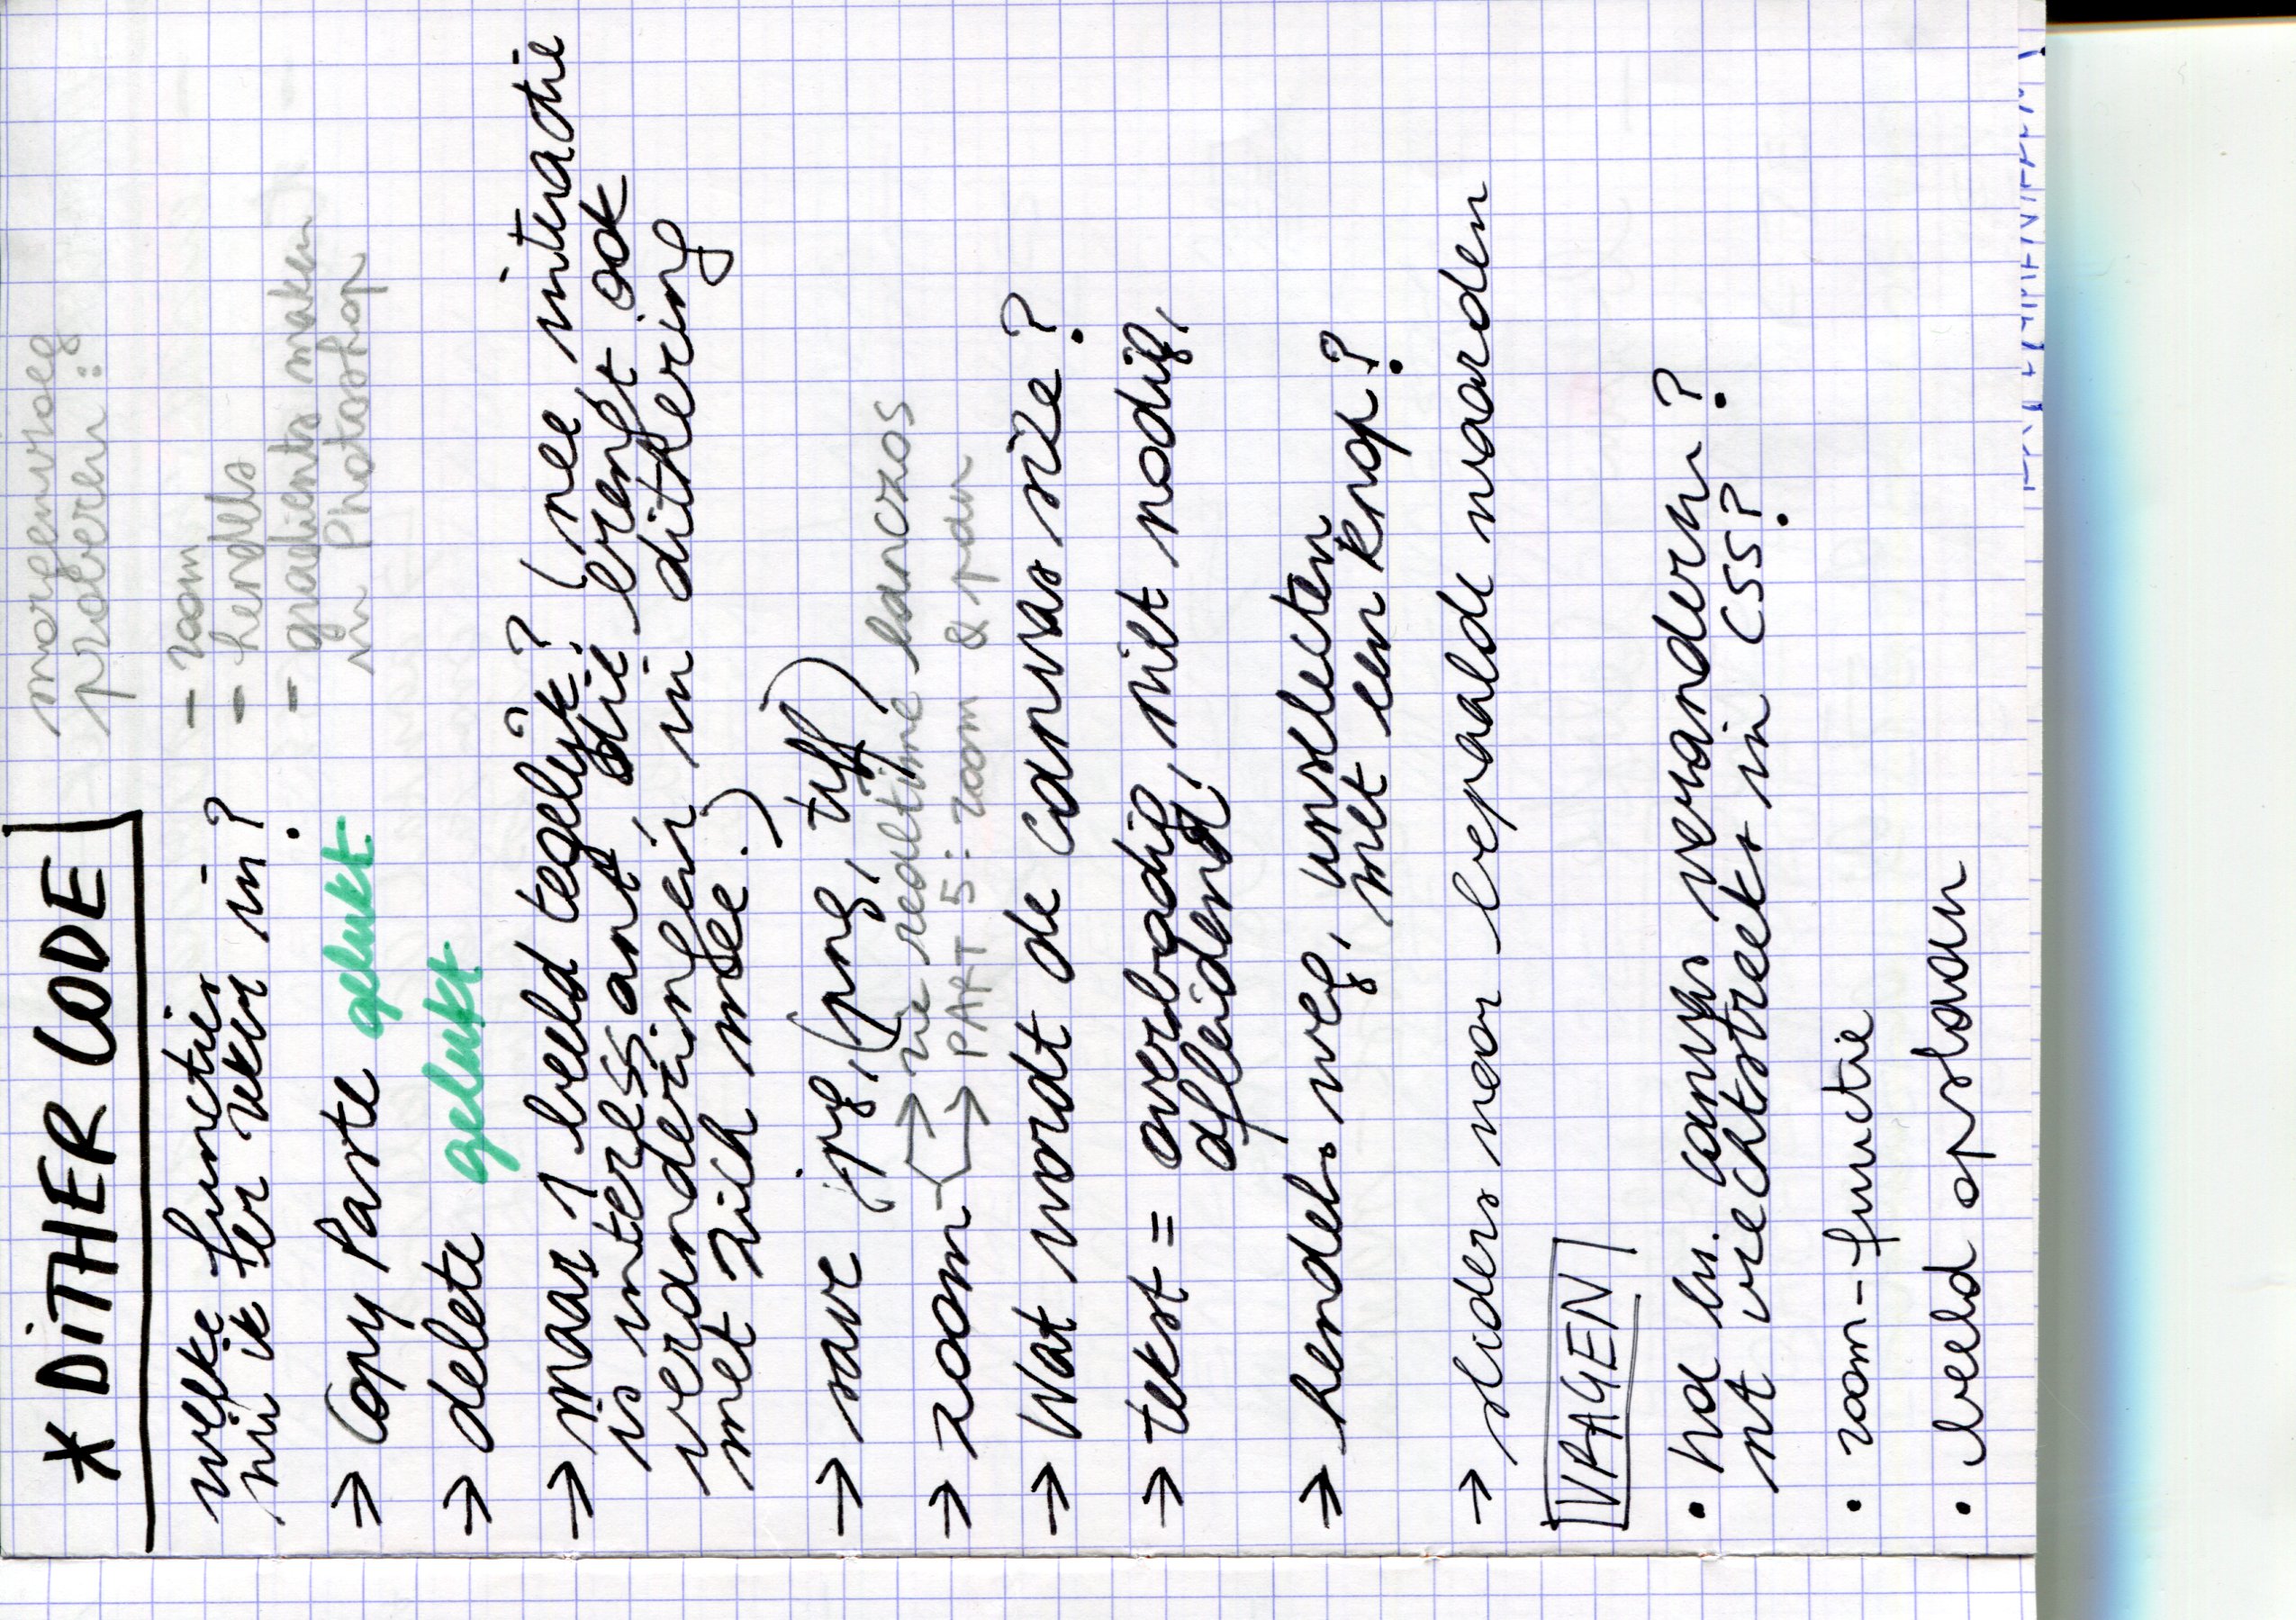 * DiTHER CODE
morgenvroeg
proberen:
- zoom
- hendels
- gradients maken
in Photoshop
welke functies
wil ik er zeker in?
→ Copy Paste gelukt
→ delete gelukt
→ maar 1 beeld tegelijk? (nee interactie
is interessant, die brengt ook
veranderingen in dithering
met zich mee.)
→ save jpg, (png, tiff)
→ zoom → zie realtime lanczos
→ PART 5: zoom & pan
→ Wat wordt de canvas size?
→ tekst = overbodig, niet nodig,
afleidend!
→ hendels weg, unselecten
met een knop?
→ sliders naar bepaalde waarden
VRAGEN
• hoe ku. canvas veranderen?
nt rechtstreeks in CSS?
• zoom-functie
• beeld opslaan